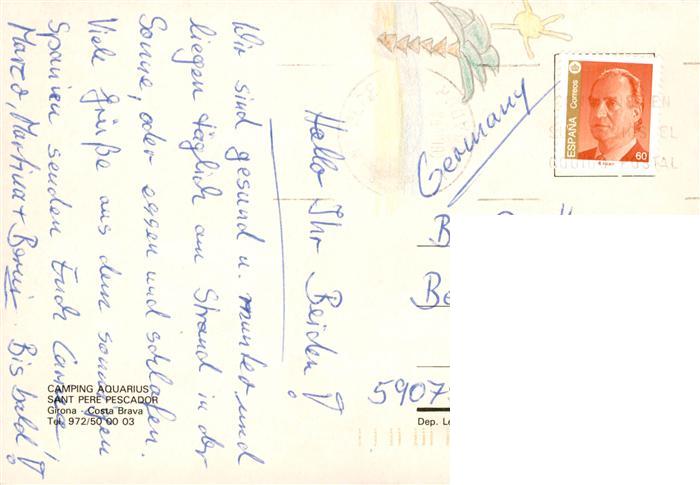 Hallo Ihr Beiden!
Wir sind gesund u. munter und
liegen täglich am Strand in der
Sonne, oder essen und schlafen.
Viele Grüße aus dem sonnigen
Spanien senden Euch
Marco, Martina + Bernis. Bis bald!
CAMPING AQUARIUS
SANT PERE PESCADOR
Girona - Costa Brava
Tel. 972/50 00 03
ESPAÑA
Correos
60
Germany
B
Be
5907
Dep. Le